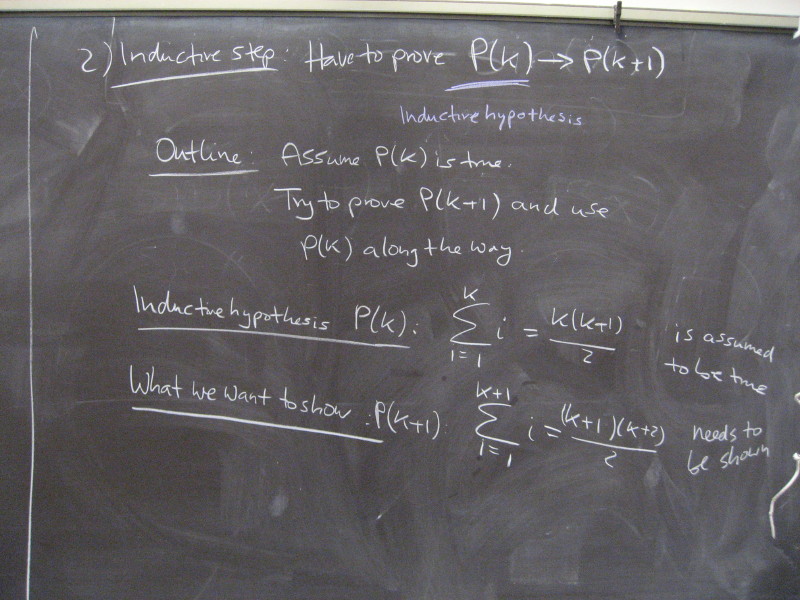 2) Inductive step: Have to prove P(k) → P(k+1)
Inductive hypothesis
Outline: Assume P(k) is true.
Try to prove P(k+1) and use
P(k) along the way.
Inductive hypothesis P(k): ∑_{i=1}^{k} i = k(k+1)/2 is assumed
to be true
What we want to show: P(k+1): ∑_{i=1}^{k+1} i = (k+1)(k+2)/2 needs to
be shown